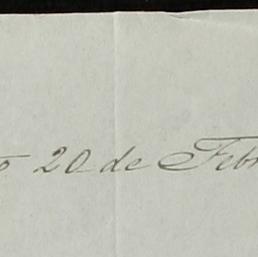 o 20 de Feb